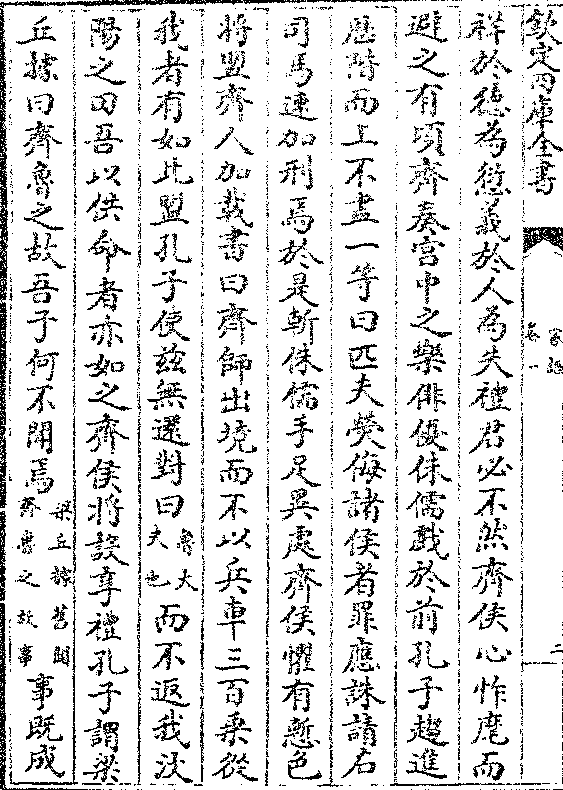 欽定四庫全書
家語
卷一
二
祥於德為愆義於人為失禮君必不然齊侯心怍麾而
避之有頃齊奏宮中之樂俳優侏儒戲於前孔子趨進
歴階而上不盡一等曰匹夫熒侮諸侯者罪應誅請右
司馬速加刑焉於是斬侏儒手足異處齊侯懼有慙色
將盟齊人加載書曰齊師出境而不以兵車三百乗從
我者有如此盟孔子使兹無還對曰魯大夫也而不返我汶
陽之田吾以供命者亦如之齊侯將設享禮孔子謂梁
丘據曰齊魯之故吾子何不聞焉梁丘據舊聞齊魯之故事事既成